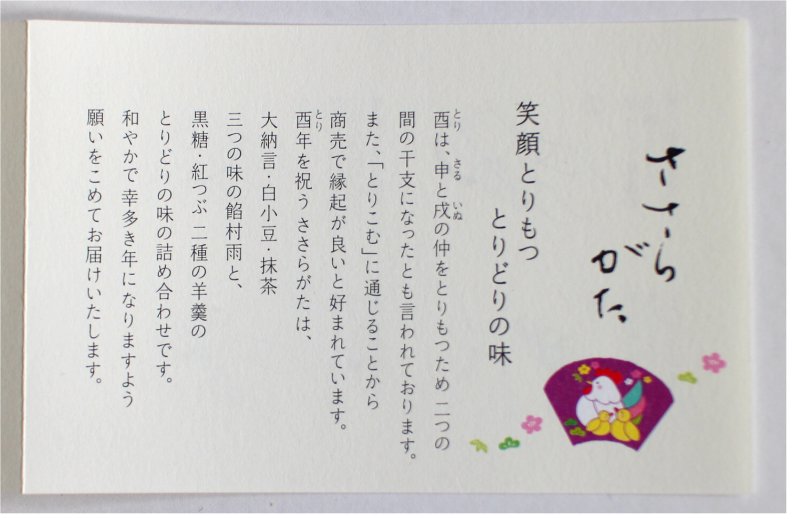 ささら
がた
笑顔とりもつ
とりどりの味
酉は、申と戌の仲をとりもつため 二つの
間の干支になったとも言われております。
また、「とりこむ」に通じることから
商売で縁起が良いと好まれています。
酉年を祝う ささらがたは、
大納言・白小豆・抹茶
三つの味の餡村雨と、
黒糖・紅つぶ 二種の羊羹の
とりどりの味の詰め合わせです。
和やかで 幸多き年になりますよう
願いをこめてお届けいたします。